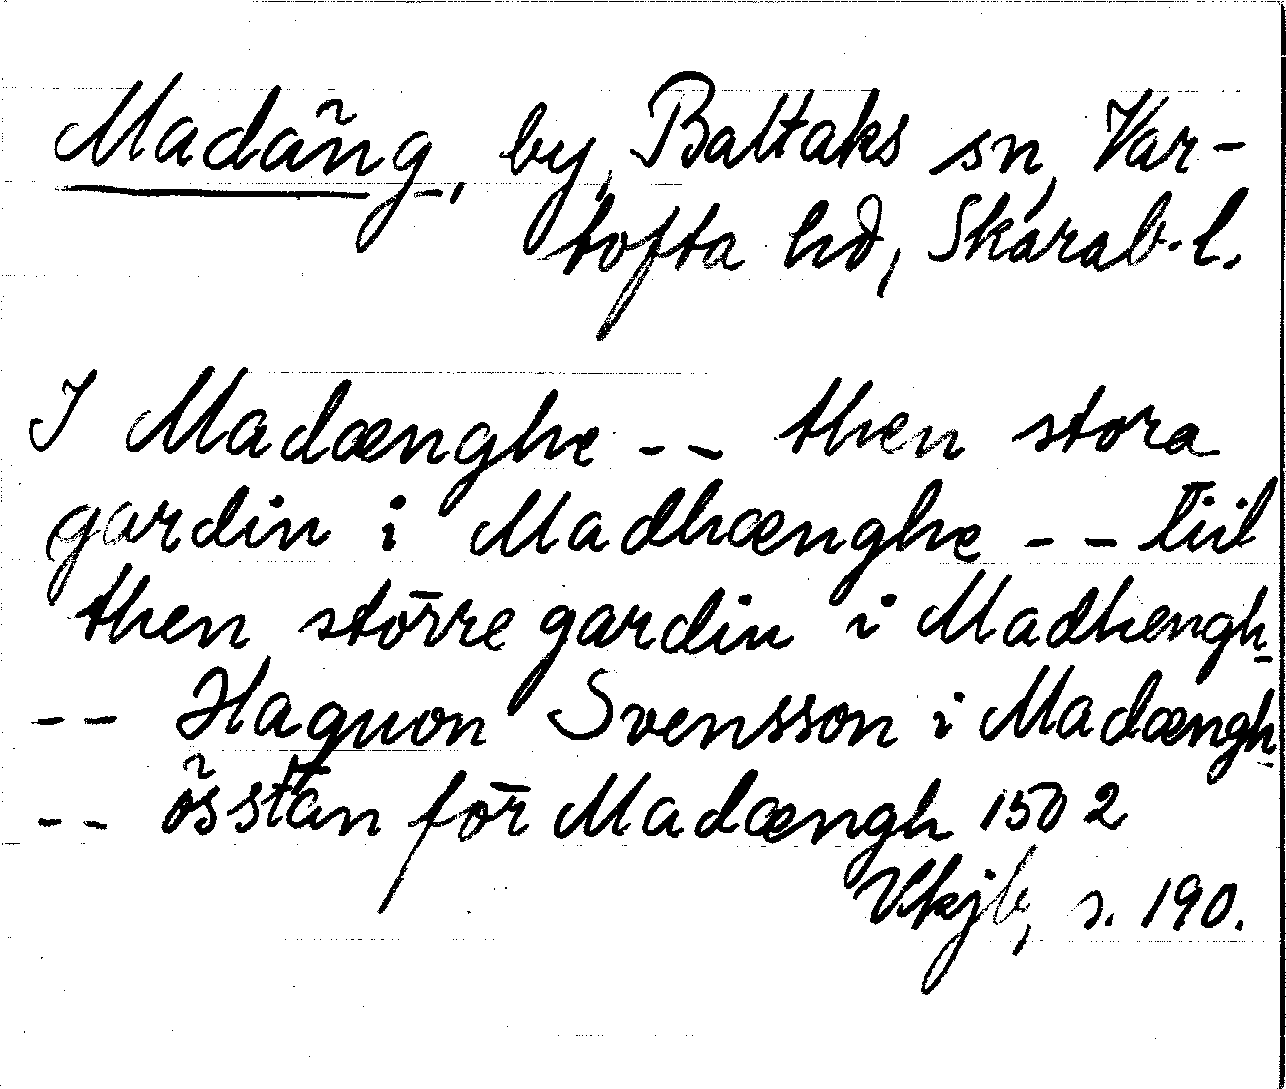 Madäng, by, Baltaks sn, Var-
tofta hd, Skarab. l.
I Madænghe -- then stora
gardin i Madhænghe -- tiil
then större gardin i Madhengh
-- Haquon Svensson i Madængh
-- össtan för Madængh 1502
Vkjb, s. 190.